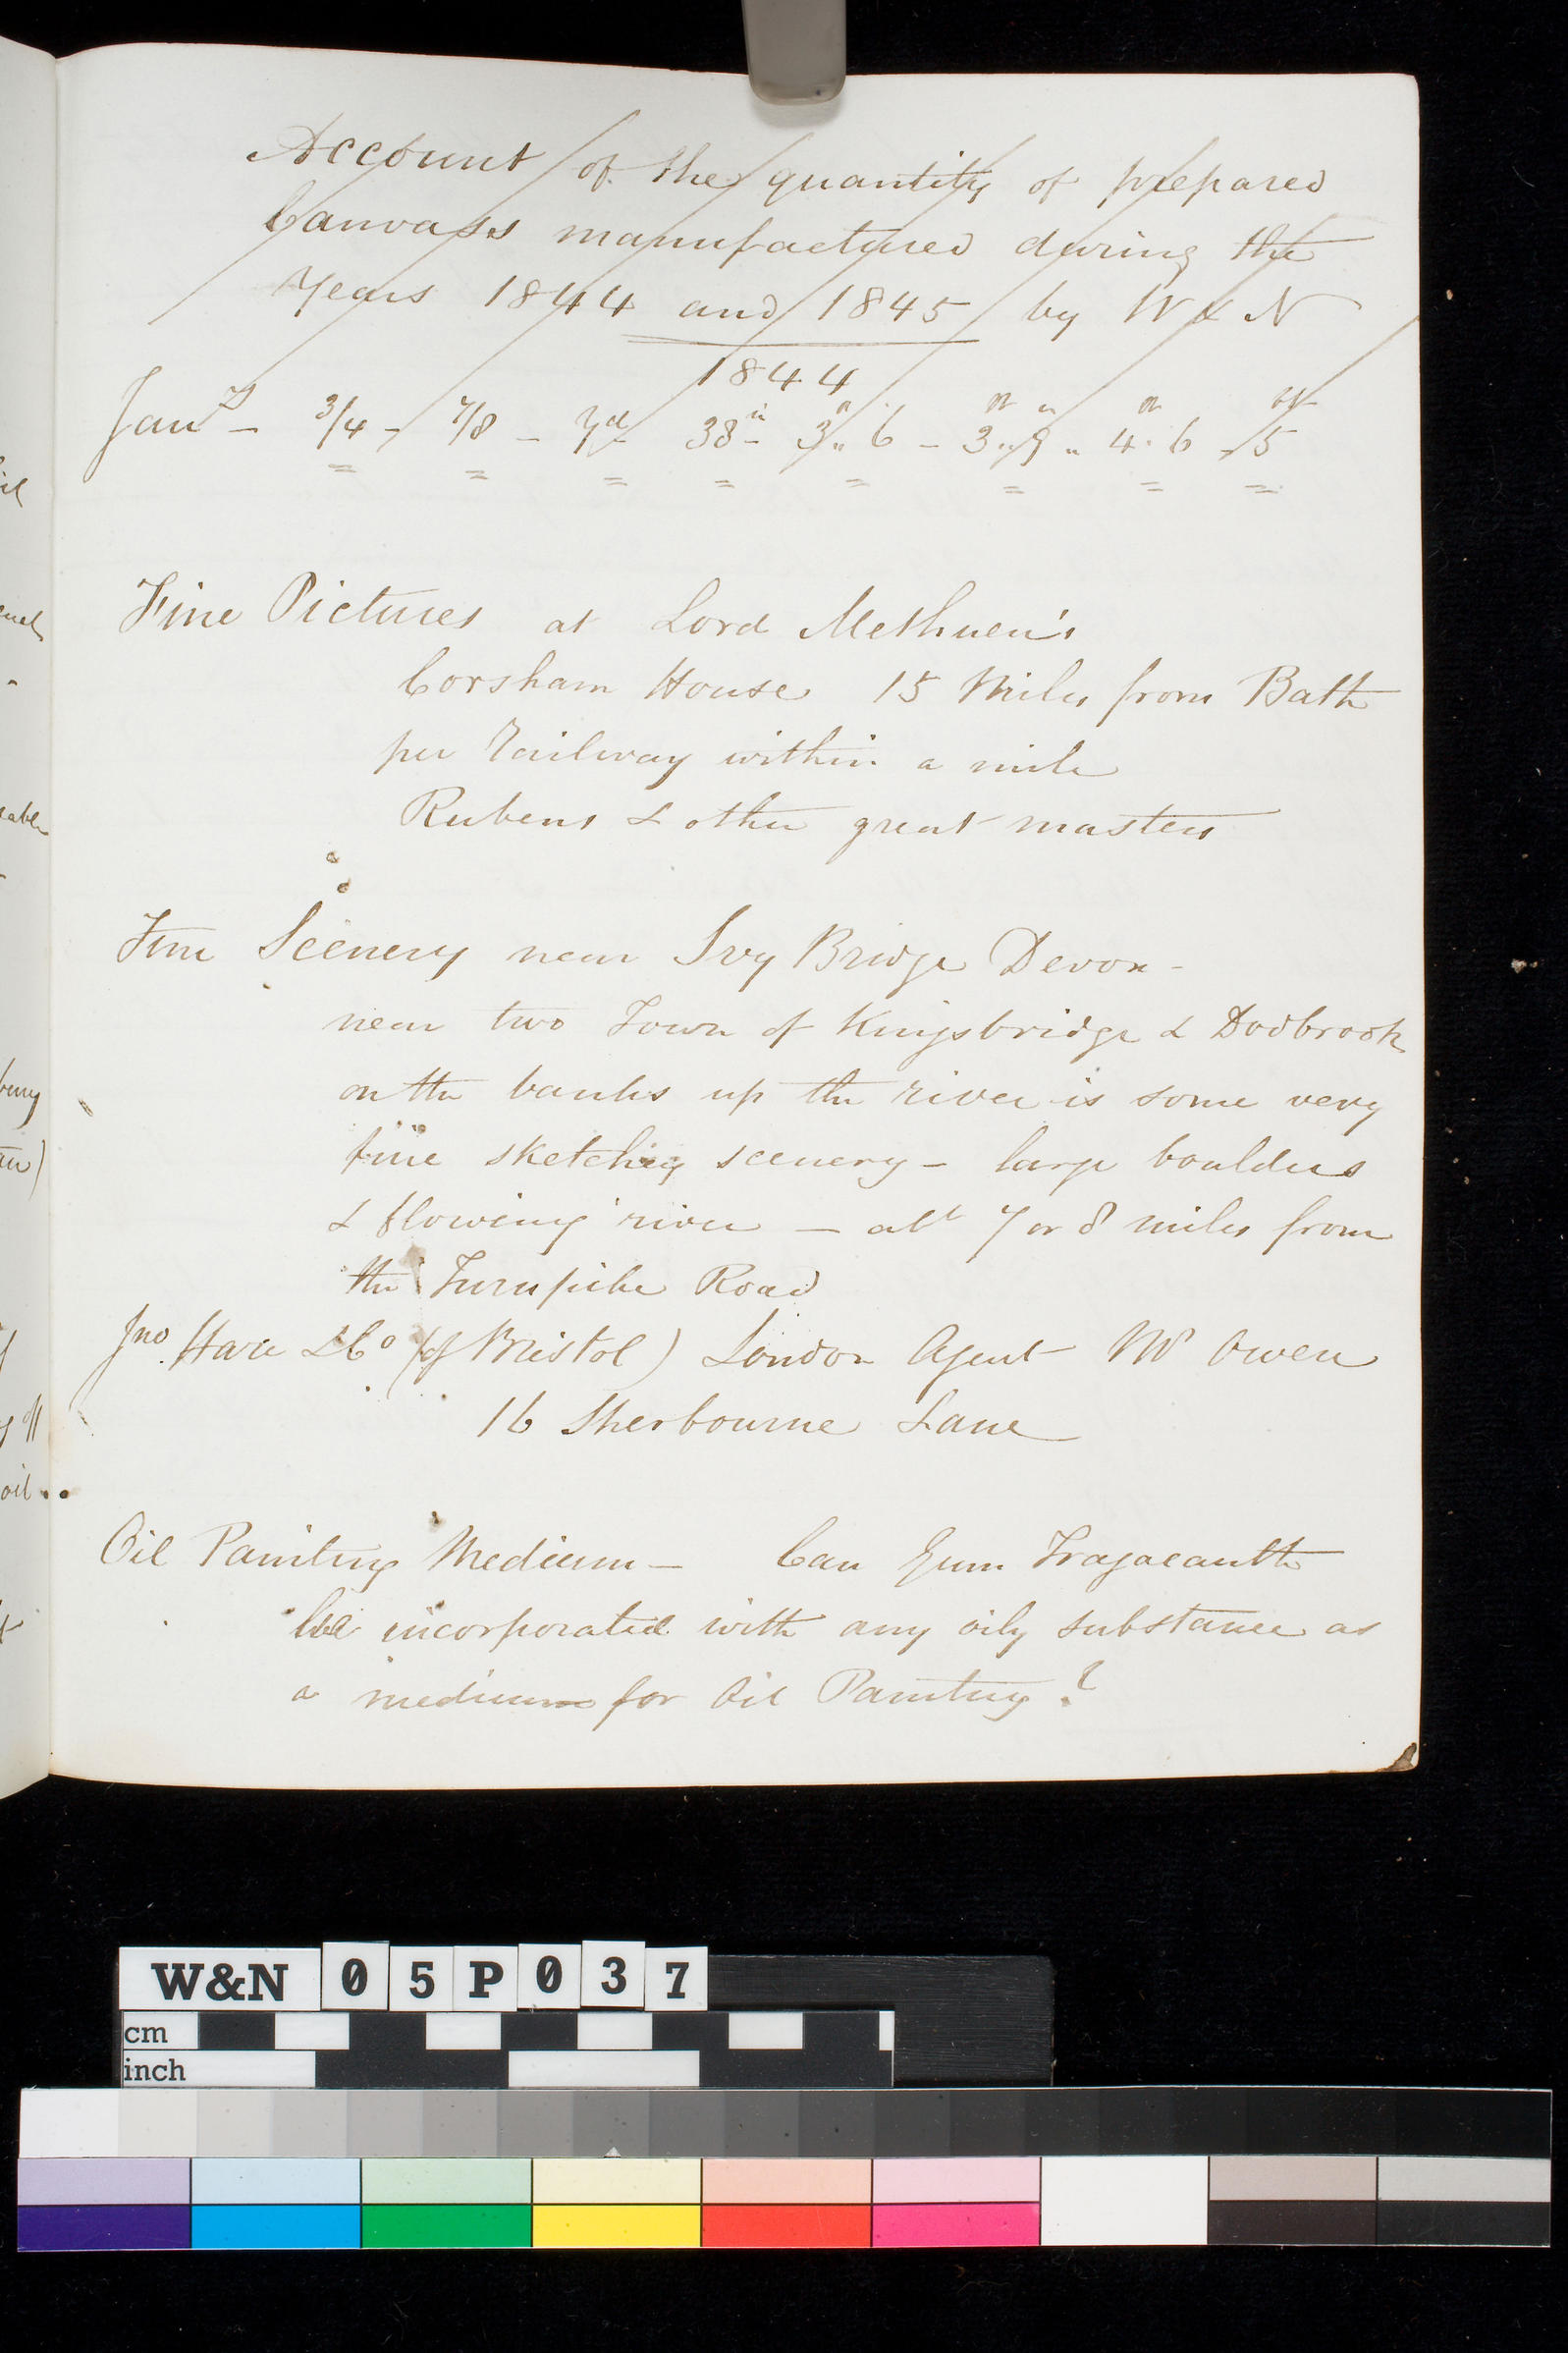 Account of the quantity of prepared
Canvass manufactured during the
Years 1844 and 1845 by W & N
1844
Jany - 3/4 - 7/8 - yd 38 in - 3 ft " 6 - 3 ft " 9 in " 4 ft " 6 - 5 ft
Fine Pictures at Lord Methuen's
Corsham House 15 Miles from Bath
per Railway within a mile
Rubens & other great masters
Fine Scenery near Ivy Bridge Devon -
near two Town of Kingsbridge & Dodbrook
on the banks up the river is some very
fine sketching scenery - large boulders
& flowing river - abt 7 or 8 miles from
the Turnpike Road
Jno. Hare & Co (of Bristol) London Agent Mr Owen
16 Sherbourne Lane
Oil Painting Medium - Can Gum Tragacanth
be incorporated with any oily substance as
a medium for Oil Painting?
oil
W&N 05P037
cm
inch